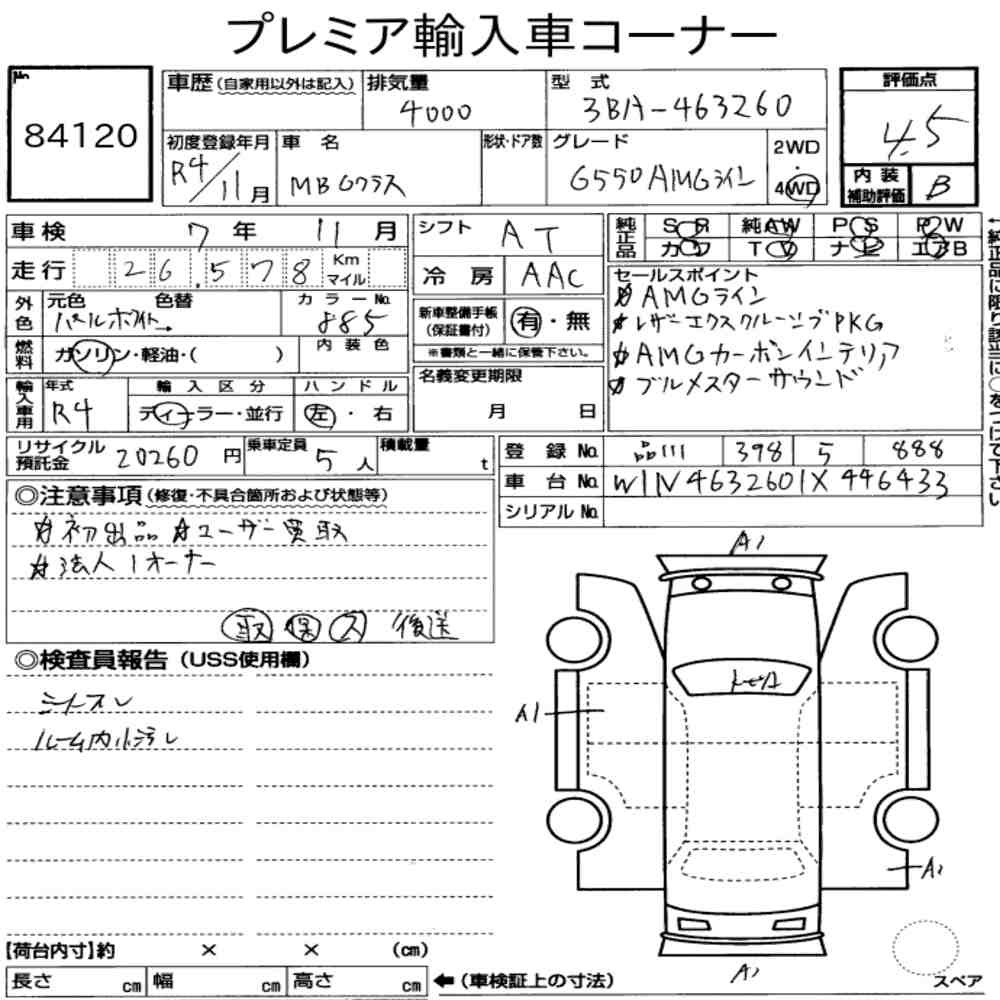 プレミア輸入車コーナー
No. 84120
車歴 (自家用以外は記入) 排気量 4000 型式 3BA-463260
評価点 4.5
初度登録年月 R4/11月 車名 MB Gクラス 形状・ドア数 グレード G550 AMGライン 2WD・4WD
内装補助評価 B
車検 7年 11月 シフト AT
純正品 SR 純AW PS PW
カワ TV ナビ エアB
走行 26,578 Km マイル 冷房 AAC
外色 元色 パールホワイト 色替 カラーNo. 885
新車整備手帳 (保証書付) 有・無
※書類と一緒に保管下さい。
燃料 ガソリン・軽油・( ) 内装色
輸入車用 年式 R4 輸入区分 ディーラー・並行 ハンドル 左・右
名義変更期限 月 日
セールスポイント
☆AMGライン
☆レザーエクスクルーシブPKG
☆AMGカーボンインテリア
☆ブルメスターサウンド
←純正品に限り該当に○をつけて下さい
リサイクル預託金 20260円 乗車定員 5人 積載量 t
登録No. 品川 398 5 888
車台No. W1N4632601X446433
シリアルNo.
◎注意事項 (修復・不具合箇所および状態等)
☆初出品 ☆ユーザー買取
☆法人1オーナー
取 保 ス 後送
◎検査員報告 (USS使用欄)
シートスレ
ルーム内小汚レ
A1
A1
A1
A1
スペア
【荷台内寸】約 × × (cm)
長さ cm 幅 cm 高さ cm ←(車検証上の寸法)